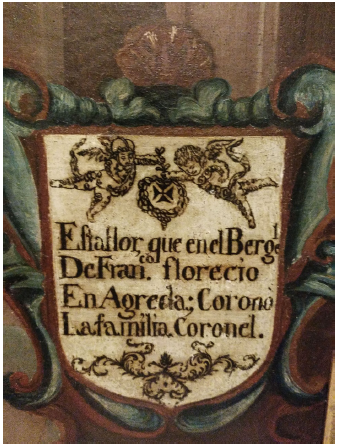 Esta flor, que en el Bergl
De Fran.co florecio
En Agreda; Coronò
La familia Coronel.